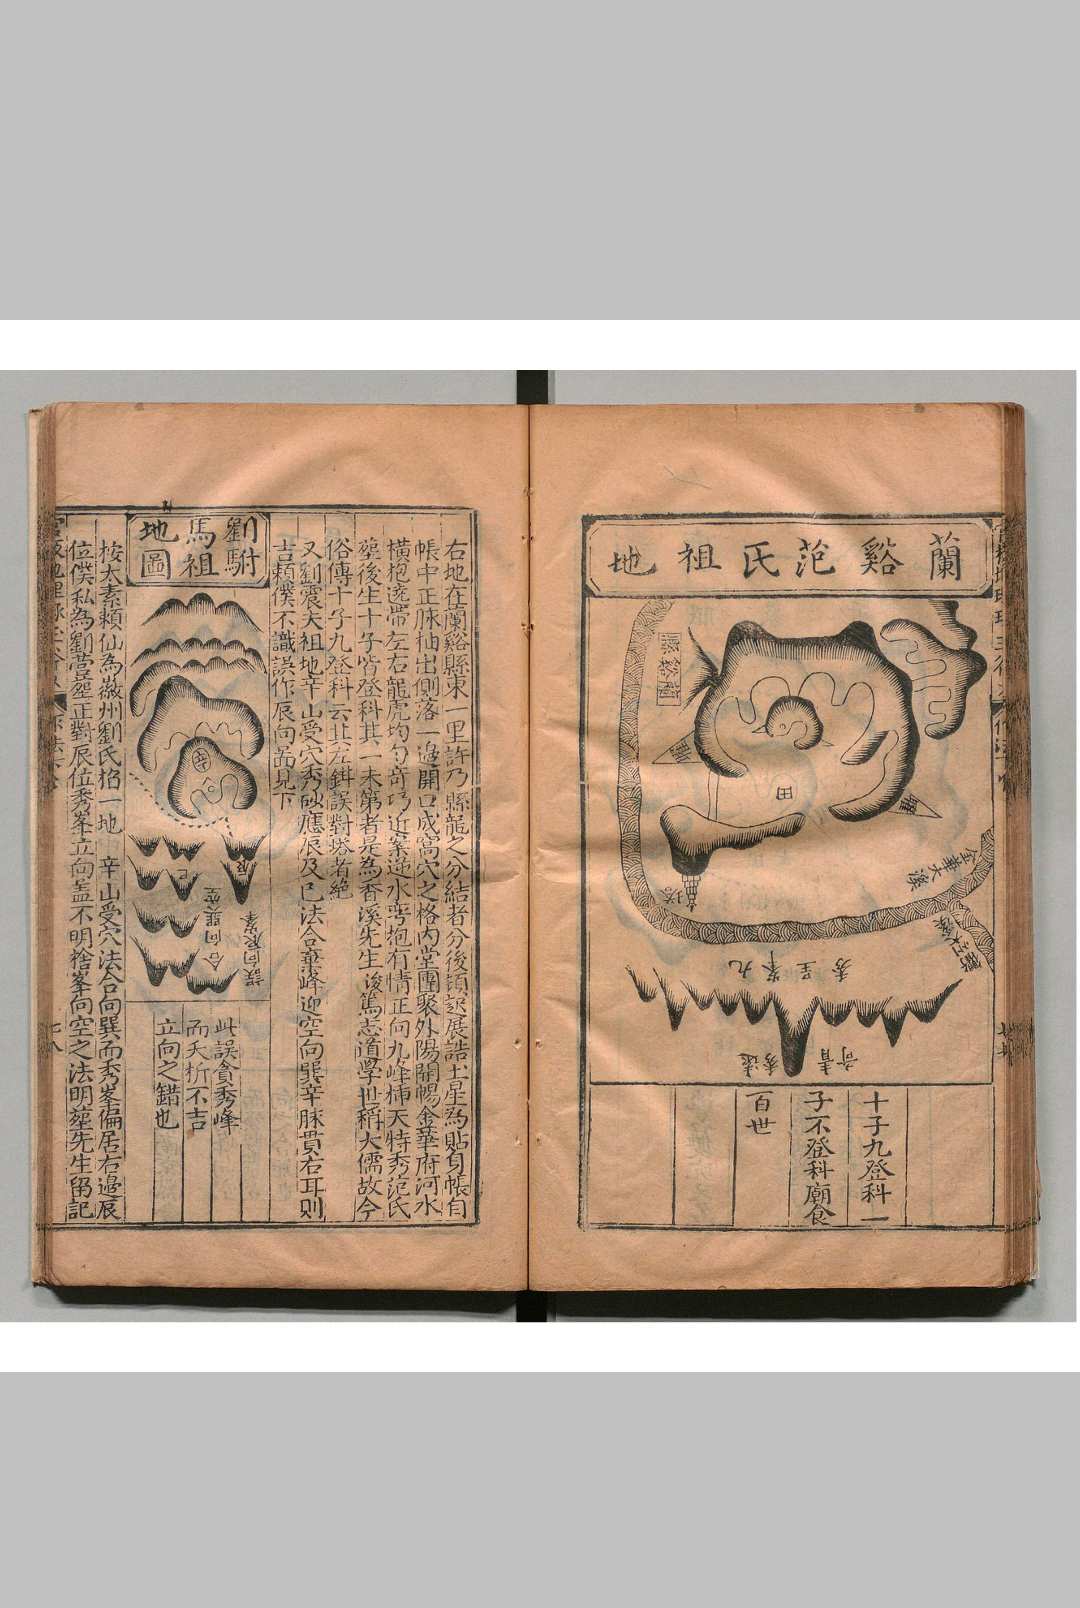 蘭谿范氏祖地
蘭谿縣
田
曜
塔
金華大溪
九峯呈秀
奇貴
秀遠
十子九登科一
子不登科廟食
百世
右地在蘭谿縣東一里許乃縣龍之分結者分後頓起展誥土星為貼身帳自
帳中正脉抽出側落一邉開口成窩穴之格内堂團聚外陽開暢金華府河水
橫抱遶帶左右龍虎均匀奇巧近案逆水彎抱有情正向九峰揷天特秀范氏
塟後生十子皆登科其一未第者是為香溪先生浚篤志道學世稱大儒故今
俗傳十子九登科云其左鉗誤對塔者絶
又劉震夫祖地辛山受穴秀砂應辰及巳法合棄峰迎空向巽辛脉貫右耳則
吉賴僕不識誤作辰向啚見下
劉駙
馬祖
地圖
辛
辰
巳
合向巽空
誤向辰峯
此誤貪秀峰
而夭折不吉
立向之錯也
桉太素賴仙為徽州劉氏拾一地 辛山受穴法合向巽而秀峯偏居右邉辰
位僕私為劉營塟正對辰位秀峯立向盖不明捨峯向空之法明塟先生留記
七八